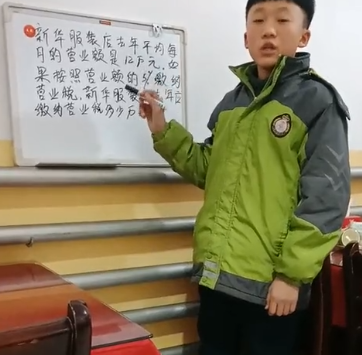 新华服装店去年平均每
月的营业额是12万元,如
果按照营业额的5%缴纳
营业税,新华服装 年应
缴纳营业税多少万